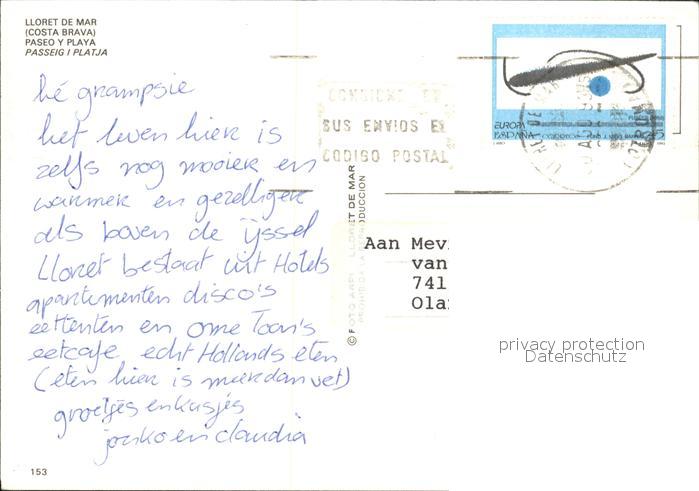 LLORET DE MAR
(COSTA BRAVA)
PASEO Y PLAYA
PASSEIG I PLATJA
hé grampsie
het leven hier is
zelfs nog mooier en
warmer en gezelliger
als boven de ijssel
Lloret bestaat uit Hotels
apartementen disco's
eettenten en ome Toon's
eetcafe echt Hollands eten
(eten hier is meer dan vet)
groetjes en kusjes
en claudia
153
SUS ENVIOS EL
CODIGO POSTAL
EUROPA
ESPAÑA
CORREOS
LLORET DE MAR
Aan Mev
van
741
Ola
privacy protection
Datenschutz